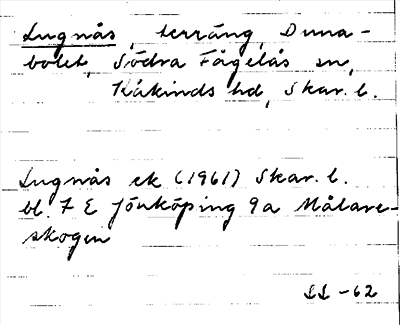 Lugnås, terräng, Duna-
bolet, Södra Fågelås sn,
Kåkinds hd, Skar. l.
Lugnås ek (1961) Skar. l.
bl. 7 E Jönköping 9a Målare-
skogen
SS -62